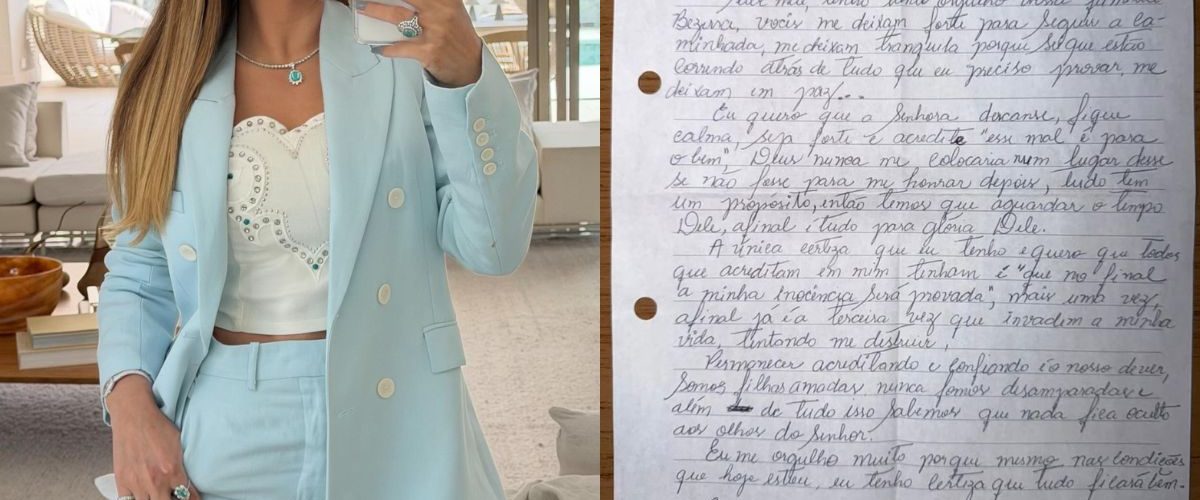 Bezerra, vocês me deixam forte para seguir a ca-
minhada, me deixam tranquila porque sei que estão
correndo atrás de tudo que eu preciso provar, me
deixam em paz...
Eu quero que a Senhora descanse, fique
calma, seja forte e acredite "esse mal é para
o bem", Deus nunca me colocaria num lugar desse
se não fosse para me honrar depois, tudo tem
um proposito, então temos que aguardar o tempo
Dele, afinal é tudo para glória Dele.
A única certeza que eu tenho e quero que todos
que acreditam em mim tenham é "que no final
a minha inocência será provada", mais uma vez,
afinal já é a terceira vez que invadem a minha
vida, tentando me destruir.
Permanecer acreditando e confiando é o nosso dever,
somos filhas amadas nunca fomos desamparadas e
além de tudo isso sabemos que nada fica oculto
aos olhos do Senhor.
Eu me orgulho muito porque mesmo nas condições
que hoje estou, eu tenho certeza que tudo ficará bem.